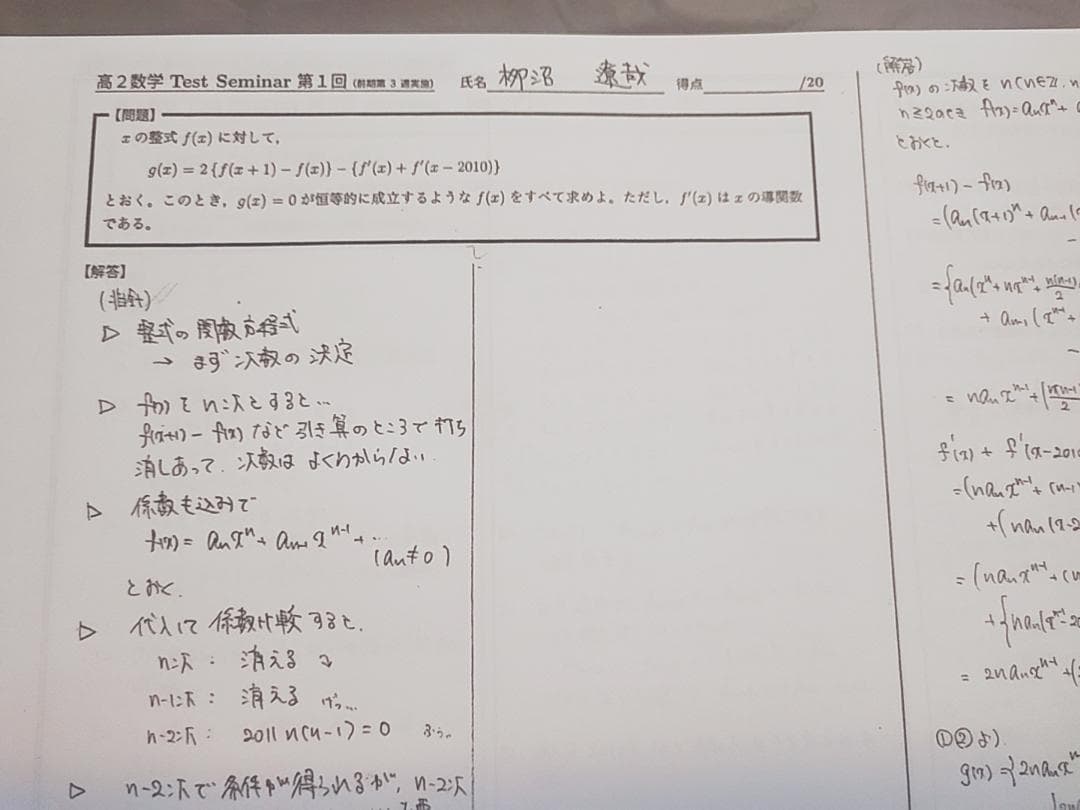 高2数学 Test Seminar 第1回 (前期第 3 週実施) 氏名 柳沼 遼哉 得点 /20
【問題】
x の整式 f(x) に対して,
g(x) = 2{f(x+1) − f(x)} − {f′(x) + f′(x − 2010)}
とおく。このとき, g(x) = 0 が恒等的に成立するような f(x) をすべて求めよ。ただし, f′(x) は x の導関数
である。
【解答】
(指針)
▷ 整式の関数方程式
→ まず次数の決定
▷ f(x) を n次とすると…
f(x+1) − f(x) など引き算のところで打ち
消しあって、次数はよくわからない
▷ 係数も込みで
f(x) = aₙxⁿ + aₙ₋₁xⁿ⁻¹ + …
(aₙ ≠ 0)
とおく.
▷ 代入して係数比較すると,
n次 : 消える
n−1次 : 消える
n−2次 : 2011 n(n−1) = 0
▷ n−2次で条件が得られるが, n−2次
(解答)
f(x) の次数を n (n∈ℤ, n
n≧2のとき f(x) = aₙxⁿ +
とおくと,
f(x+1) − f(x)
= (aₙ(x+1)ⁿ + aₙ₋₁(
= {aₙ(xⁿ + nxⁿ⁻¹ + n(n−1)/2
+ aₙ₋₁(xⁿ⁻¹ +
= naₙxⁿ⁻¹ + (n(n−1)/2
f′(x) + f′(x − 2010
= (naₙxⁿ⁻¹ + (n−1)
+ (naₙ(x − 2
= (naₙxⁿ⁻¹ + (n
+ {naₙ(xⁿ⁻¹ − 20
= 2naₙxⁿ⁻¹ + (
①②より
g(x) = {2naₙxⁿ